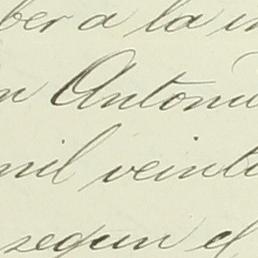 ber a la in
n Antoni
mil veinti
segun el